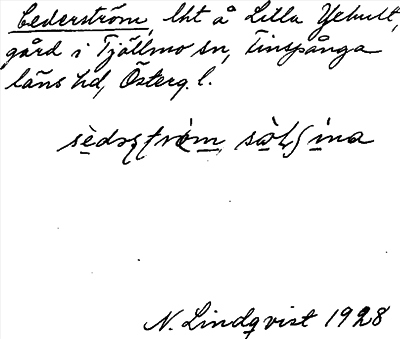 Cederström, lht å Lilla Yxhult,
gård i Tjällmo sn, Finspånga
läns hd, Österg. l.
N. Lindqvist 1928